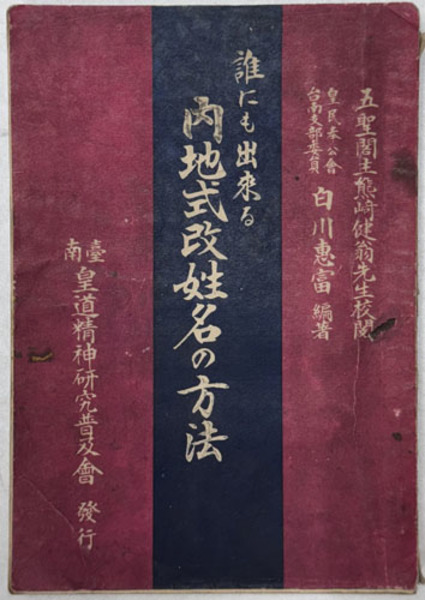 五聖閣主熊﨑健翁先生校閲
皇民奉公會
台南支部委員
白川惠富 編著
誰にも出來る
內地式改姓名の方法
臺南 皇道精神硏究普及會 發行